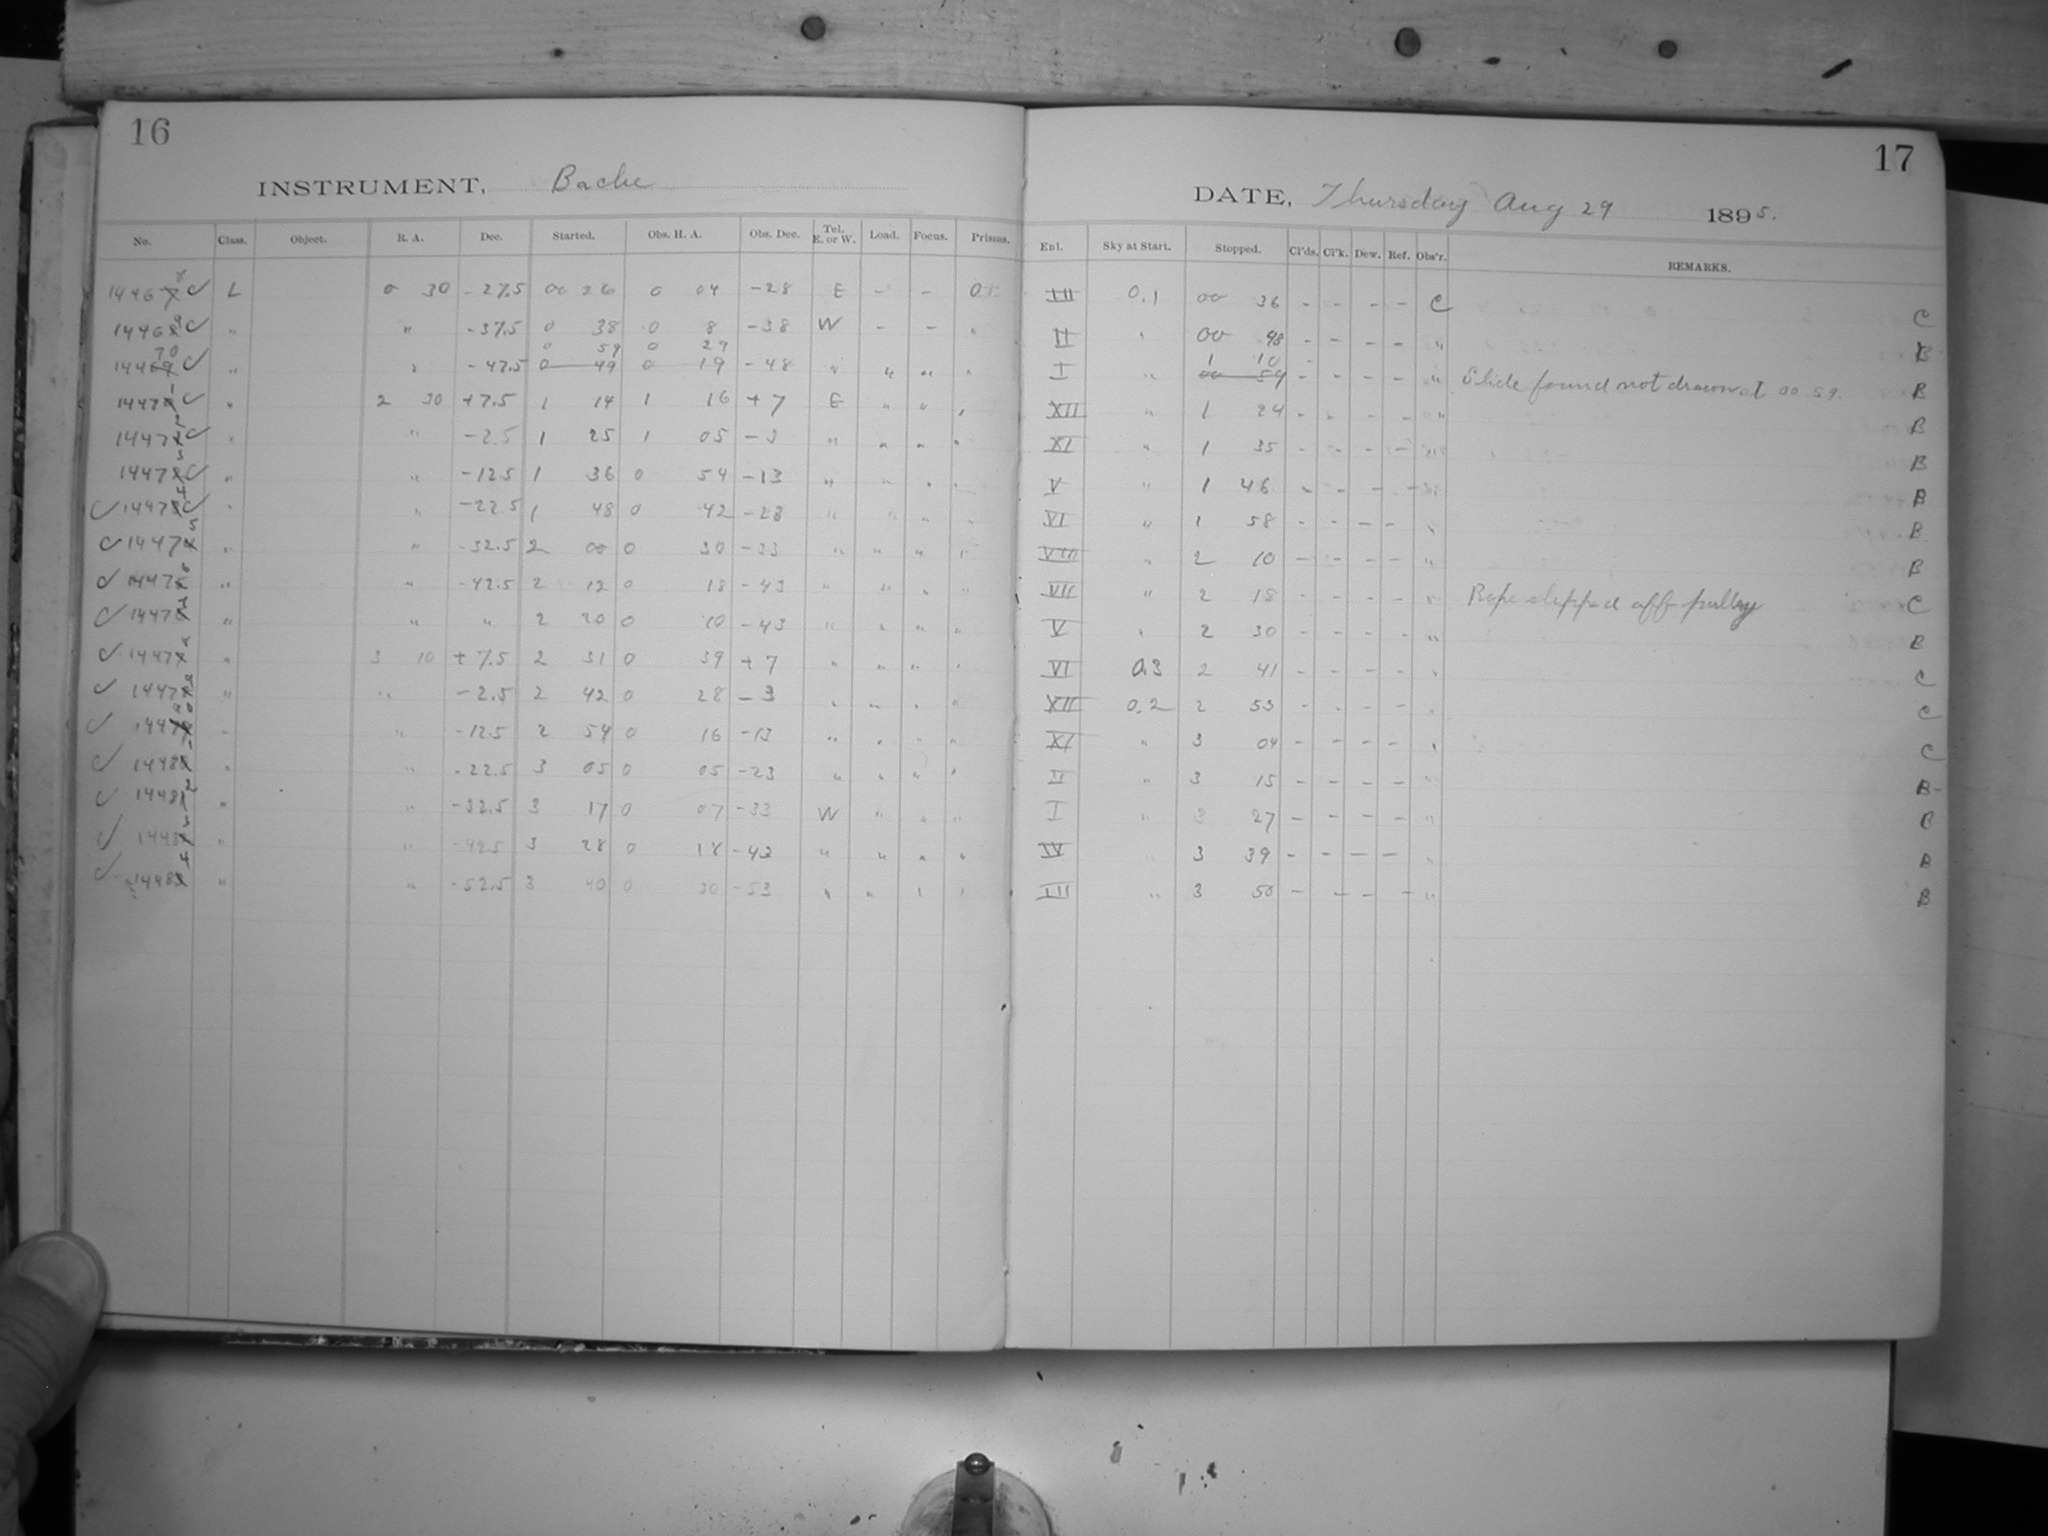 16
INSTRUMENT, Bache
No. Class. Object. R. A. Dec. Started. Obs. H. A. Obs. Dec. Tel. E. or W. Load. Focus. Prisms.
14467 8 ✓ L 0 30 -27.5 00 26 0 04 -28 E - - 0
14468 9 ✓ " " -37.5 0 38 0 8 -38 W - - "
0 59 0 29
14469 70 ✓ " " -47.5 0 49 0 19 -48 " " " "
14470 1 ✓ " 2 30 +7.5 1 14 1 16 +7 E " " "
14471 2 ✓ " " -2.5 1 25 1 05 -3 " " " "
14472 3 ✓ " " -12.5 1 36 0 54 -13 " " " "
✓ 14473 4 ✓ " " -22.5 1 48 0 42 -23 " " " "
✓ 14474 5 " " -32.5 2 00 0 30 -33 " " " "
✓ 14475 6 " " -42.5 2 12 0 18 -43 " " " "
✓ 14476 7 " " " 2 20 0 10 -43 " " " "
✓ 14477 8 " 3 10 +7.5 2 31 0 39 +7 " " " "
✓ 14478 9 " " -2.5 2 42 0 28 -3 " " " "
✓ 14479 80 " " -12.5 2 54 0 16 -13 " " " "
✓ 14480 1 " " -22.5 3 05 0 05 -23 " " " "
✓ 14481 2 " " -32.5 3 17 0 07 -33 W " " "
✓ 14482 3 " " -42.5 3 28 0 18 -43 " " " "
✓ 14483 4 " " -52.5 3 40 0 30 -53 " " " "
17
DATE, Thursday Aug 29 1895.
Enl. Sky at Start. Stopped. Cl'ds. Cl'k. Dew. Ref. Obs'r. REMARKS.
III 0.1 00 36 - - - - C C
II " 00 48 - - - - " B
1 10
I " 00 59 - - - - " Slide found not drawn at 00 59. B
XII " 1 24 - - - - " B
XI " 1 35 - - - - " B
V " 1 46 - - - - " B
VI " 1 58 - - - - " B
VIII " 2 10 - - - - " B
VII " 2 18 - - - - " Rope slipped off pulley C
V " 2 30 - - - - " B
VI 0.3 2 41 - - - - " C
XII 0.2 2 53 - - - - " C
XI " 3 04 - - - - " C
II " 3 15 - - - - " B-
I " 3 27 - - - - " B
IV " 3 39 - - - - " B
III " 3 50 - - - - " B